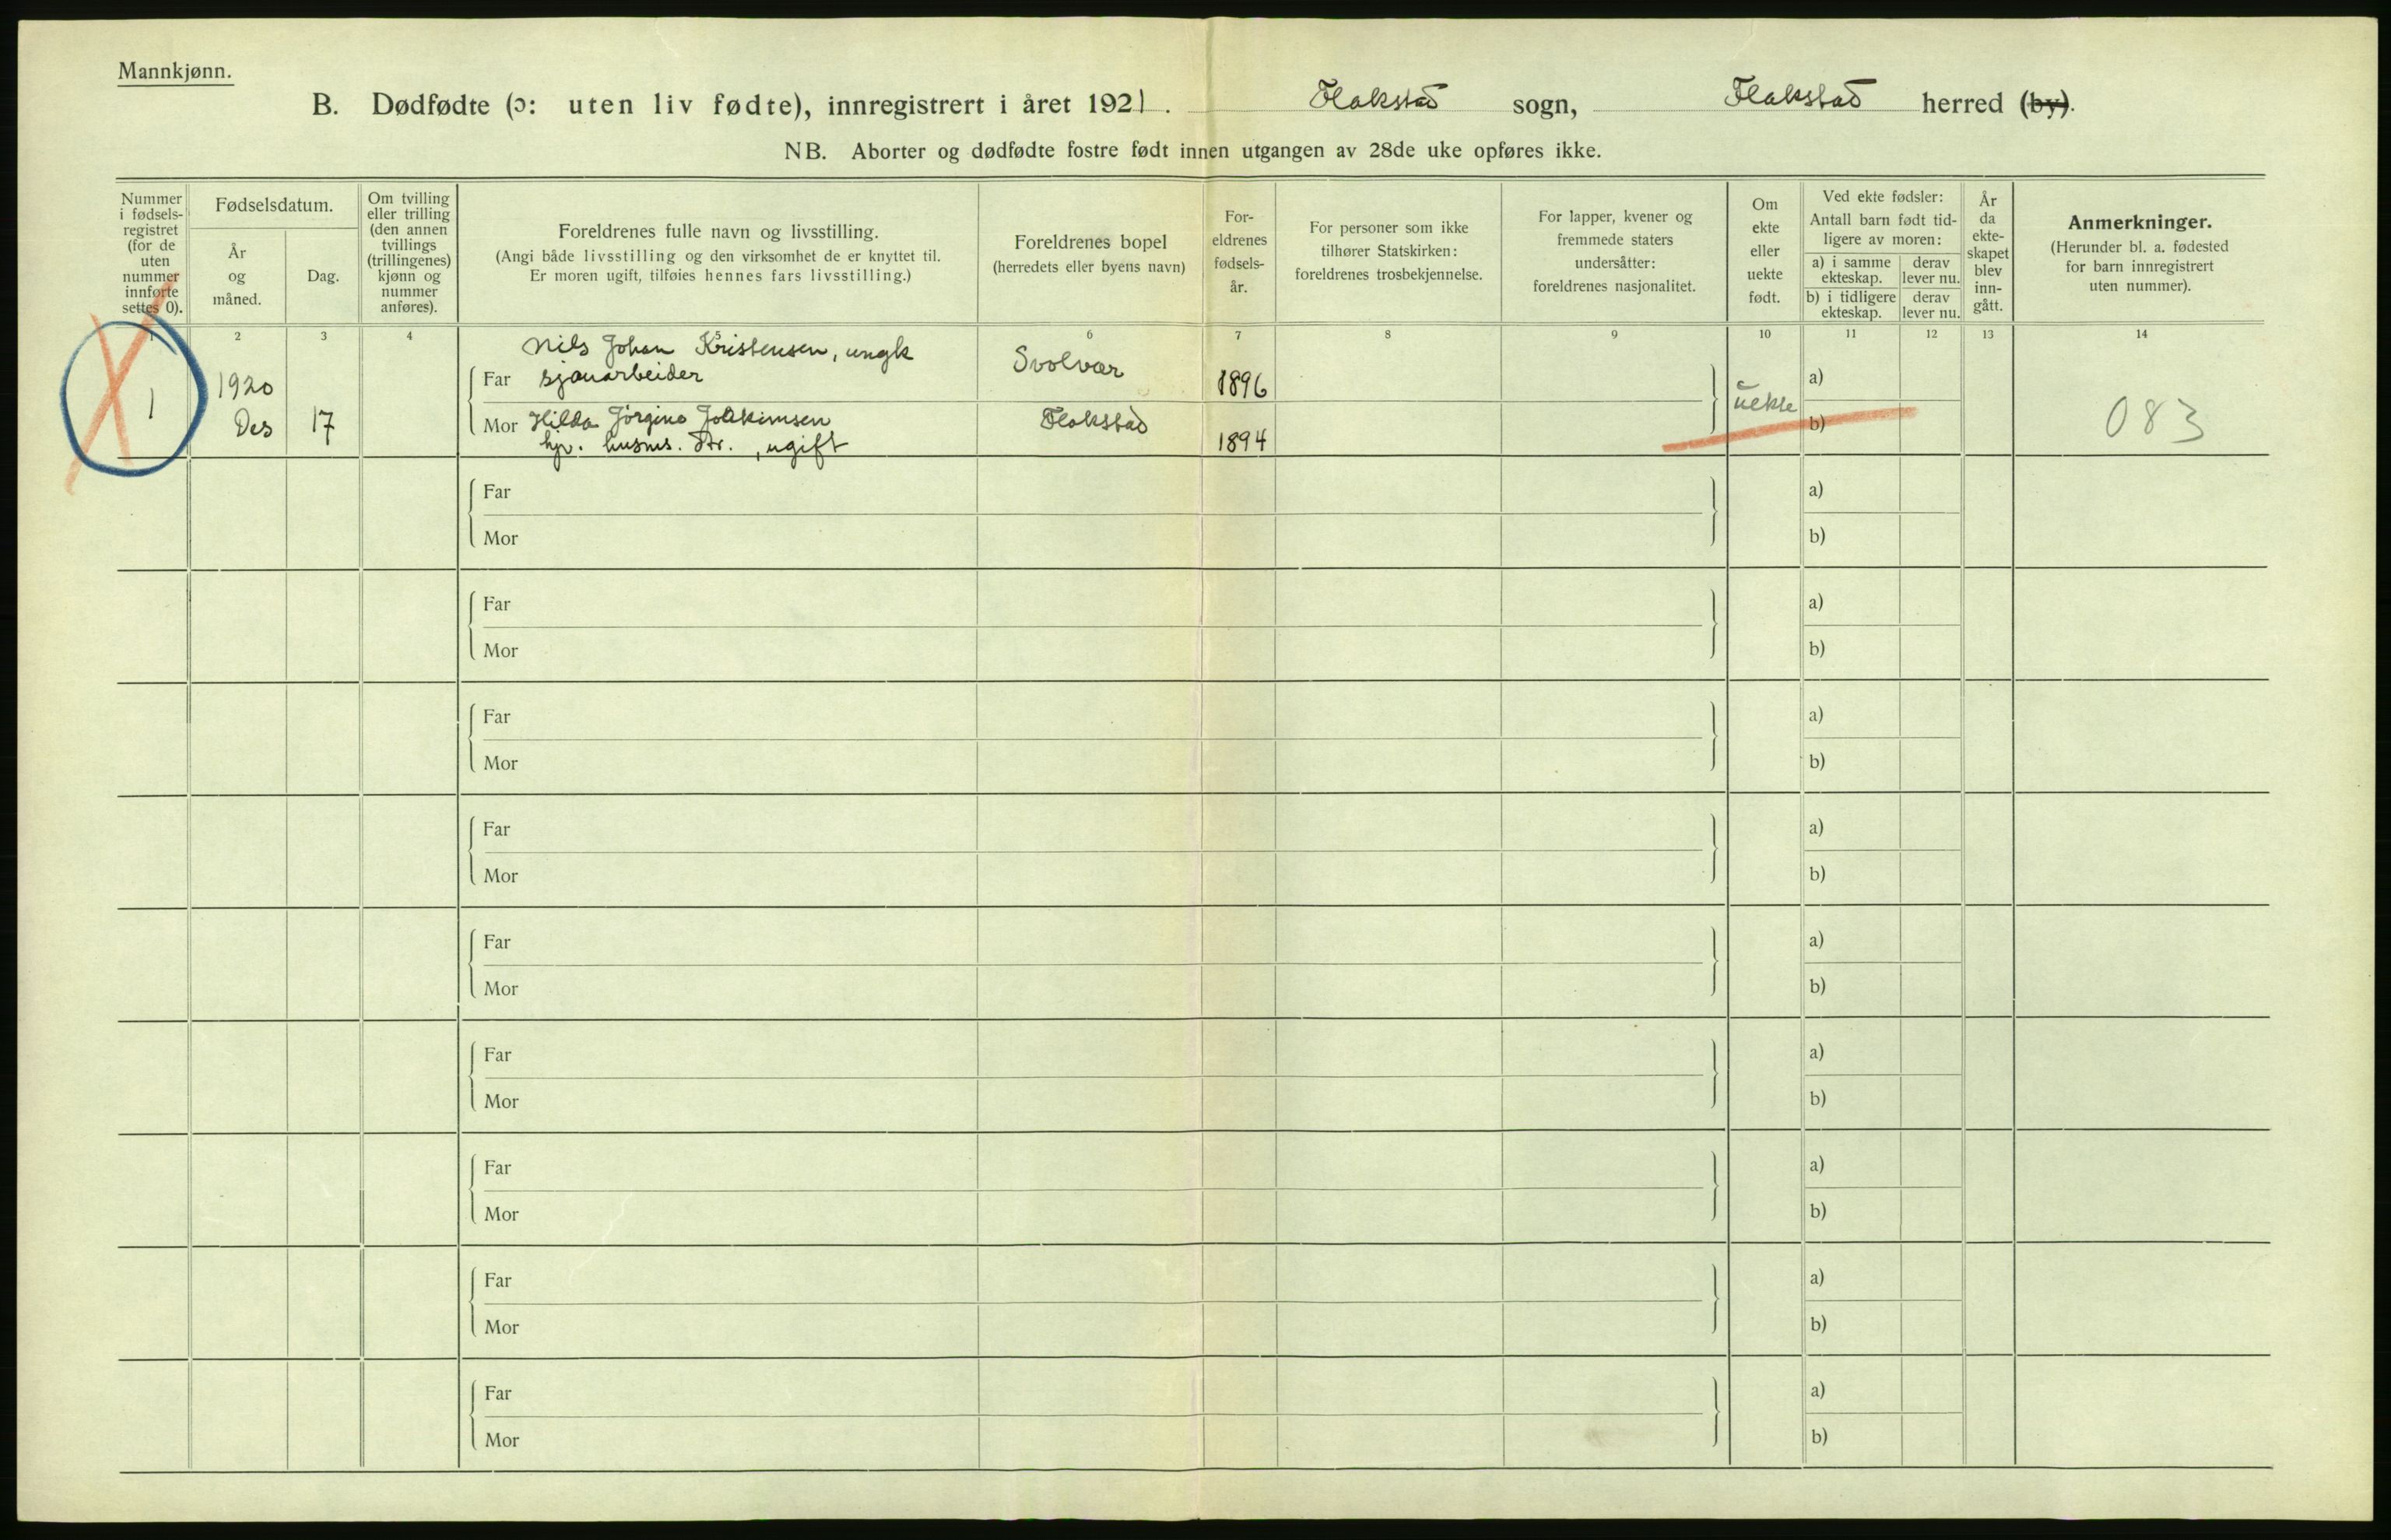 Mannkjønn.
B. Dødfødte (ɔ: uten liv fødte), innregistrert i året 1921. Flakstad sogn, Flakstad herred (by).
NB. Aborter og dødfødte fostre født innen utgangen av 28de uke opføres ikke.
Nummer
i fødsels-
registret
(for de
uten
nummer
innførte
settes 0).
Fødselsdatum.
År
og
måned.
Dag.
Om tvilling
eller trilling
(den annen
tvillings
(trillingenes)
kjønn og
nummer
anføres).
Foreldrenes fulle navn og livsstilling.
(Angi både livsstilling og den virksomhet de er knyttet til.
Er moren ugift, tilføies hennes fars livsstilling.)
Foreldrenes bopel
(herredets eller byens navn)
For-
eldrenes
fødsels-
år.
For personer som ikke
tilhører Statskirken:
foreldrenes trosbekjennelse.
For lapper, kvener og
fremmede staters
undersåtter:
foreldrenes nasjonalitet.
Om
ekte
eller
uekte
født.
Ved ekte fødsler:
Antall barn født tid-
ligere av moren:
a) i samme
ekteskap.
derav
lever nu.
b) i tidligere
ekteskap.
derav
lever nu.
År
da
ekte-
skapet
blev
inn-
gått.
Anmerkninger.
(Herunder bl. a. fødested
for barn innregistrert
uten nummer).
1 2 3 4 5 6 7 8 9 10 11 12 13 14
1
1920
Des 17
Nils Johan Kristensen, ungk
Far sjauarbeider
Svolvær
1896
Mor Hilda Jørgine Joakimsen
hjv. husms. dtr., ugift
Flakstad
1894
uekte
a)
b)
083
Far
Mor
a)
b)
Far
Mor
a)
b)
Far
Mor
a)
b)
Far
Mor
a)
b)
Far
Mor
a)
b)
Far
Mor
a)
b)
Far
Mor
a)
b)
Far
Mor
a)
b)
Far
Mor
a)
b)